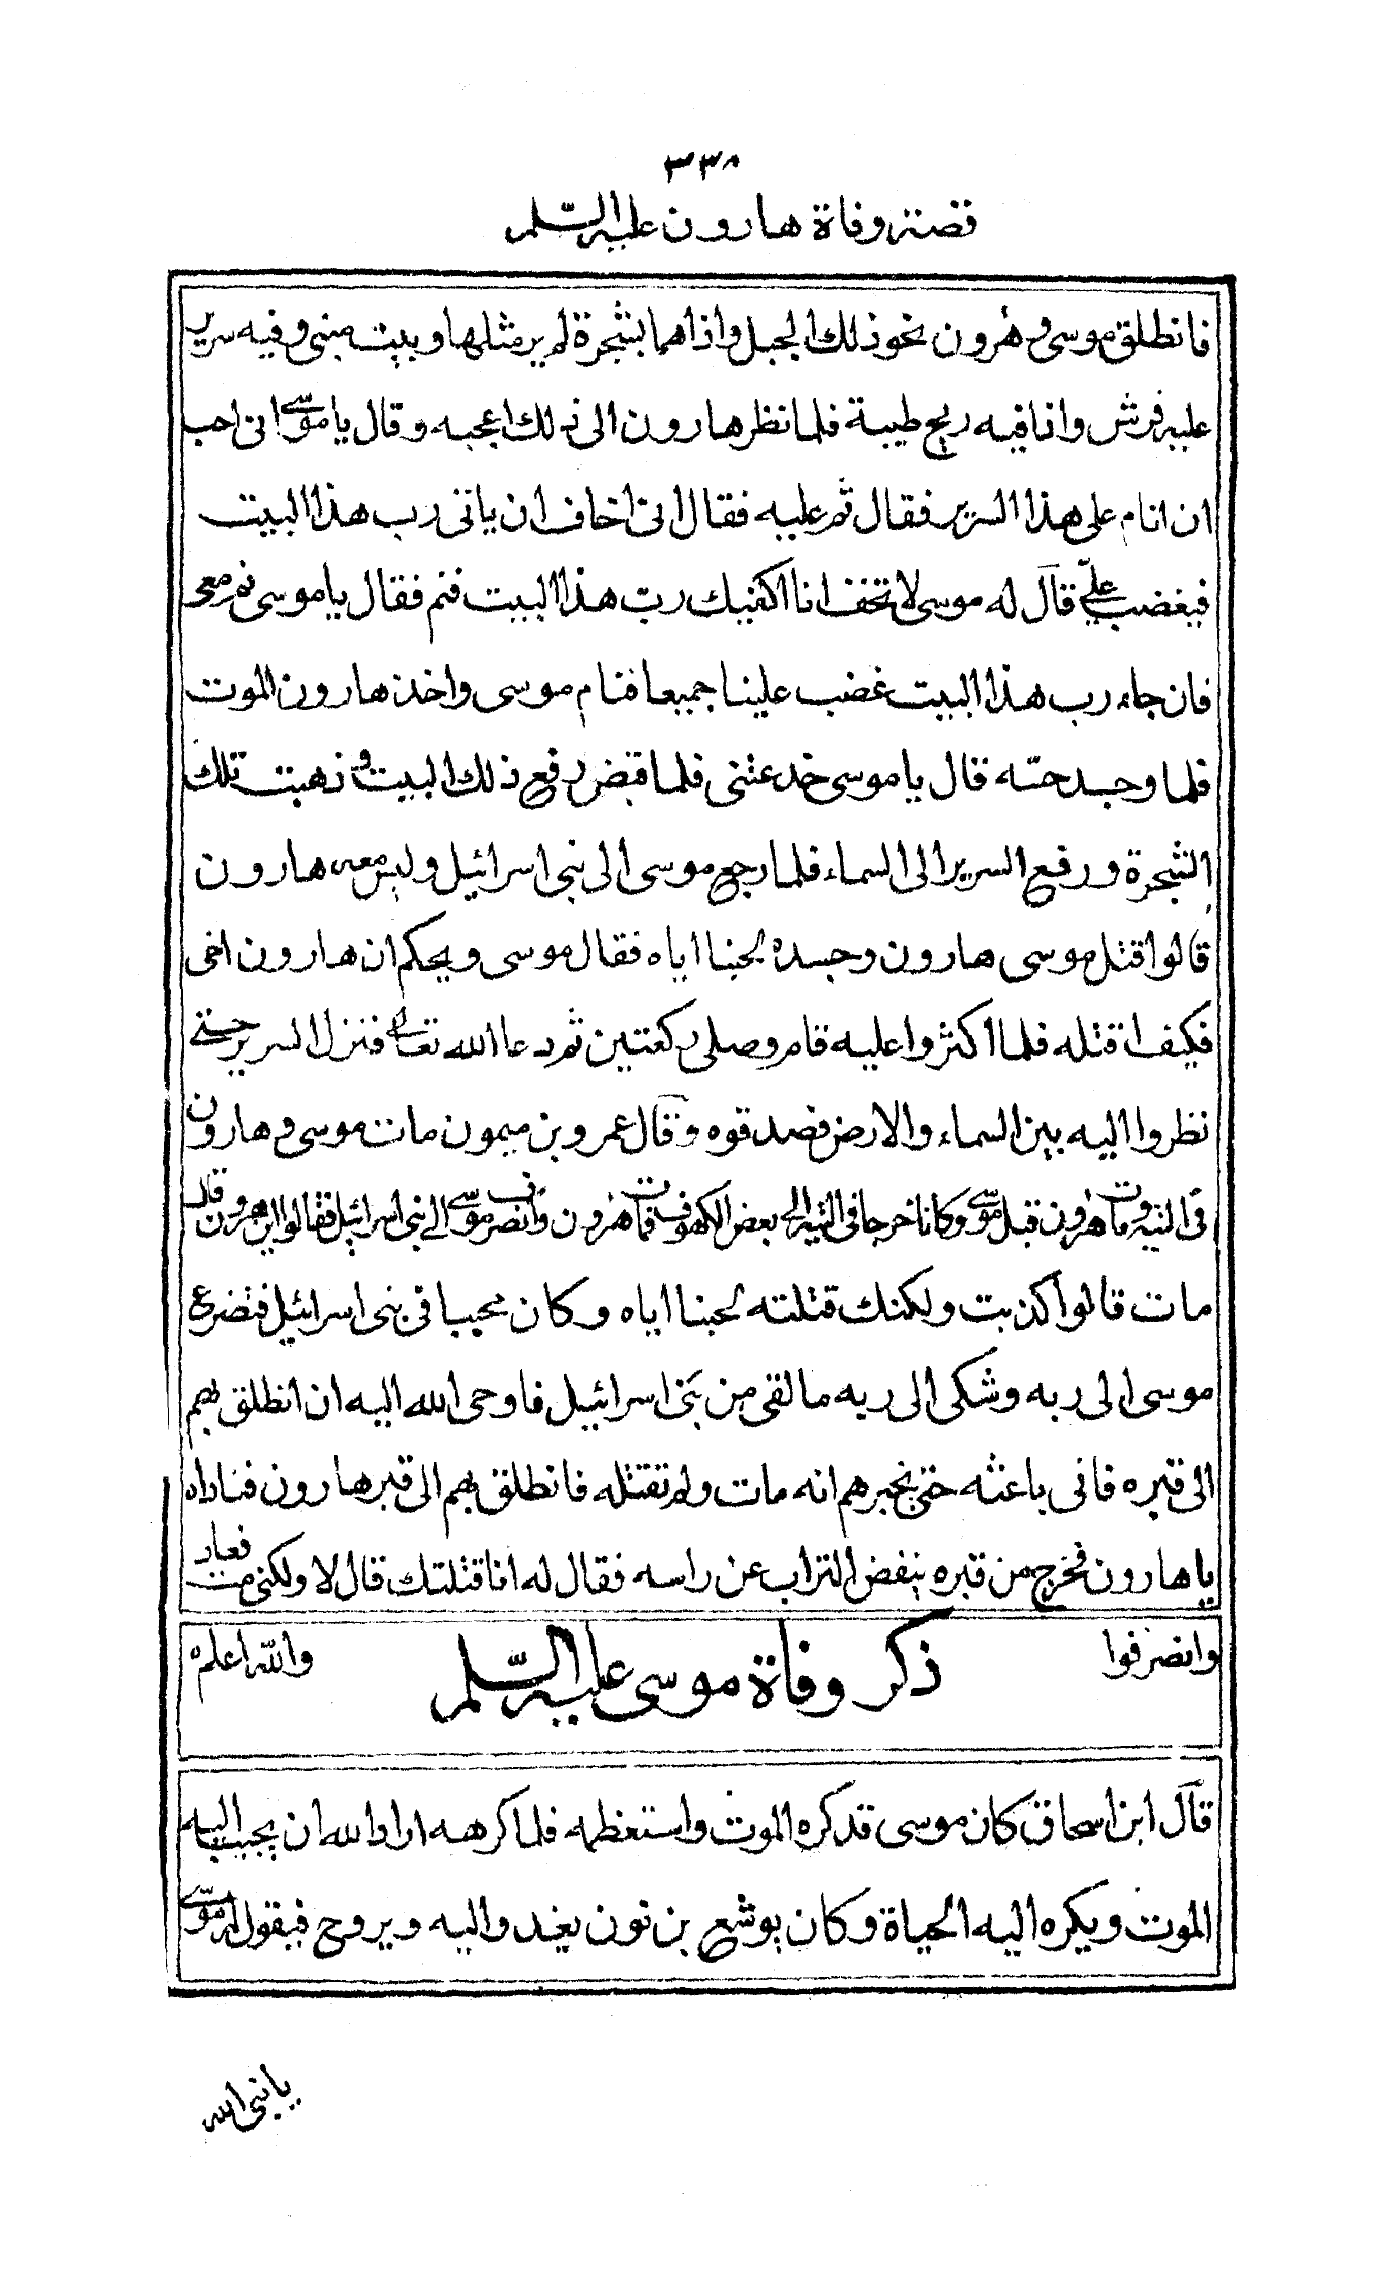 ٣٣٨
قصة وفاة هارون عليه السلم
فانطلق موسى وهرون نحو ذلك الجبل واذاهما بشجرة لم ير مثلها وبيت مبنى وفيه سرير
عليه فرش واذا فيه ريح طيبة فلما نظر هارون الى ذلك اعجبه وقال يا موسى انى احب
ان انام على هذا السرير فقال نم عليه فقال انى اخاف ان ياتى رب هذا البيت
فيغضب علىّ قال له موسى لا تخف انا اكفيك ربّ هذا البيت فنم فقال يا موسى نم معى
فان جاء رب هذا البيت غضب علينا جميعا فنام موسى واخذ هارون الموت
فلما وجد حسّه قال يا موسى خدعتنى فلما قبض رفع ذلك البيت وذهبت تلك
الشجرة ورفع السرير الى السماء فلما رجع موسى الى بنى اسرائيل وليس معه هارون
قالوا قتل موسى هارون وحسده لحبنا اياه فقال موسى ويحكم ان هارون اخى
فكيف اقتله فلما اكثروا عليه قام وصلى ركعتين ثم دعا الله تعالى فنزل السرير حتى
نظروا اليه بين السماء والارض فصدقوه وقال عمرو بن ميمون مات موسى وهارون
فى التيه ومات هرون قبل موسى وكانا خرجا فى التيه الى بعض الكهوف فمات هرون وانصرف موسى الى بنى اسرائيل فقالوا اين هرون قال
مات قالوا كذبت ولكنك قتلته لحبنا اياه وكان محببا فى بنى اسرائيل فتضرع
موسى الى ربه وشكى الى ربه ما لقى من بنى اسرائيل فاوحى الله اليه ان انطلق بهم
الى قبره فانى باعثه حتى يخبرهم انه مات ولم تقتله فانطلق بهم الى قبر هارون فناداه
يا هارون فخرج من قبره ينفض التراب عن راسه فقال له انا قتلتك قال لا ولكنى مت فعاد
وانصرفوا والله اعلم
ذكر وفاة موسى عليه السلم
قال ابن اسحاق كان موسى قد كره الموت واستعظمه فلما كرهه اراد الله ان يحبب اليه
الموت ويكره اليه الحياة وكان يوشع بن نون يغدو اليه ويروح فيقول له موسى
يا نبى الله